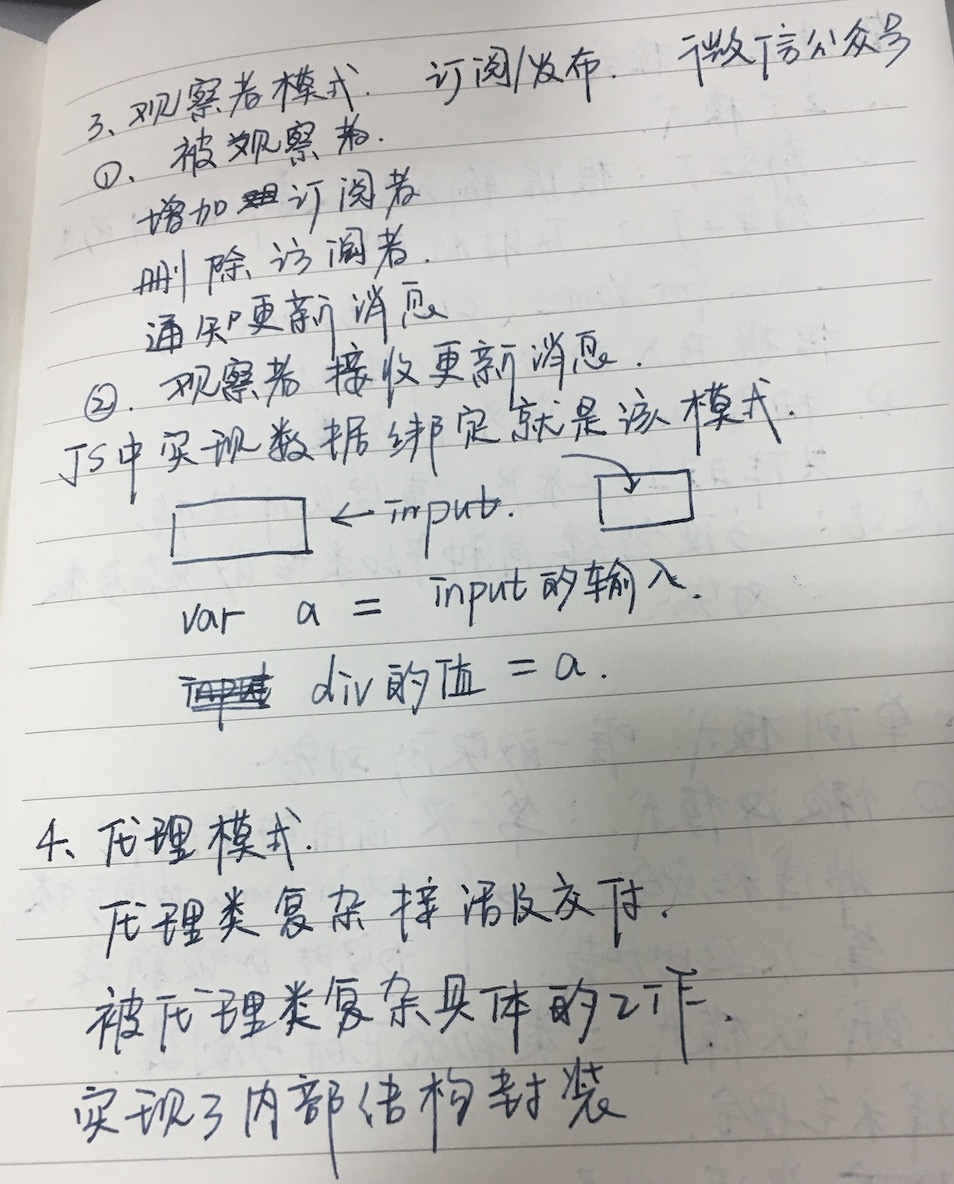 3、观察者模式. 订阅/发布. 微信公众号
①、被观察者.
增加订阅者
删除订阅者.
通知更新消息
②. 观察者 接收更新消息.
JS中实现数据绑定就是该模式.
←input.
var a = input的输入.
div的值 = a.
4、代理模式.
代理类复杂接活及交付.
被代理类复杂具体的工作.
实现了内部结构封装